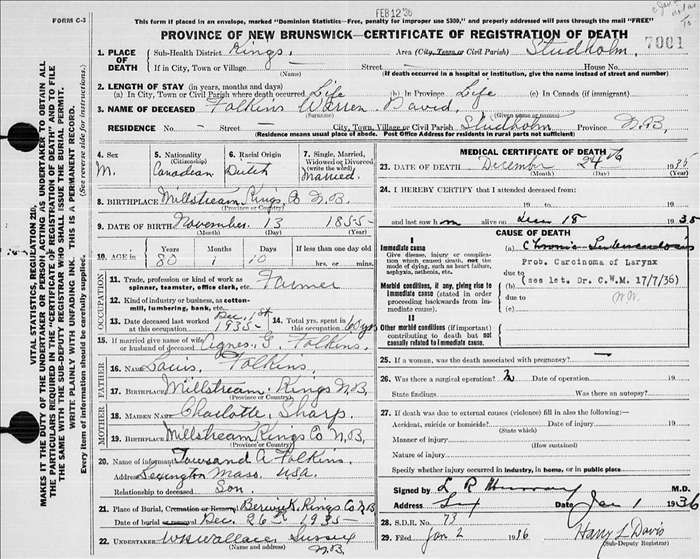 FORM C-3
FEB 12 '36
This form if placed in an envelope, marked "Dominion Statistics—Free, penalty for improper use $300," and properly addressed will pass through the mail "FREE"
PROVINCE OF NEW BRUNSWICK—CERTIFICATE OF REGISTRATION OF DEATH
7001
1. PLACE OF DEATH
Sub-Health District Kings, Area (City, Town or Civil Parish) Studholm,
If in City, Town or Village — (Name) Street — House No.
(If death occurred in a hospital or institution, give the name instead of street and number)
2. LENGTH OF STAY (in years, months and days)
(a) In City, Town or Civil Parish where death occurred Life (b) In Province Life (c) In Canada (if immigrant)
3. NAME OF DECEASED Folkins Warren David,
(Surname) (Given name or names)
RESIDENCE No. — Street — City, Town, Village or Civil Parish Studholm Province N.B.
(Residence means usual place of abode. Post Office Address for residents in rural parts not sufficient)
4. Sex M. 5. Nationality (Citizenship) Canadian 6. Racial Origin Dutch 7. Single, Married, Widowed or Divorced (write the word) Married.
8. BIRTHPLACE Millstream Kings Co N.B.
(Province or Country)
9. DATE OF BIRTH November 13 1855
(Month) (Day) (Year)
10. AGE in Years 80 Months 1 Days 10 If less than one day old
hrs. or mins.
OCCUPATION
11. Trade, profession or kind of work as spinner, teamster, office clerk, etc. Farmer
12. Kind of industry or business, as cotton-mill, lumbering, bank, etc.
13. Date deceased last worked at this occupation Dec. 1st 1935 14. Total yrs. spent in this occupation
15. If married give name of wife or husband of deceased Agnes G. Folkins.
FATHER
16. Name Louis Folkins.
17. Birthplace Millstream Kings N.B.
(Province or Country)
MOTHER
18. Maiden Name Charlotte Sharp
19. Birthplace Millstream Kings Co N.B.
(Province or Country)
20. Name of informant Townsand A Folkins.
Address Lexington Mass. USA
Relationship to deceased Son.
21. Place of Burial, Cremation or Removal Berwick Kings Co N.B
Date of burial or removal Dec. 26th 1935
22. UNDERTAKER WH Wallace, Sussex N.B
(Name and address)
MEDICAL CERTIFICATE OF DEATH
23. DATE OF DEATH December 24th 1935
(Month) (Day) (Year)
24. I HEREBY CERTIFY that I attended deceased from:
19 to 19
and last saw h m alive on Dec 18 1935
CAUSE OF DEATH
I
Immediate cause
Give disease, injury or complication which caused death, not the mode of dying, such as heart failure, asphyxia, asthenia, etc.
(a) Chronic
Prob. Carcinoma of Larynx
due to
(see let. Dr. C.W.M. 17/7/36)
Morbid conditions, if any, giving rise to immediate cause (stated in order proceeding backwards from immediate cause).
(b)
due to
(c)
II
Other morbid conditions (if important) contributing to death but not causally related to immediate cause.
25. If a woman, was the death associated with pregnancy? —
26. Was there a surgical operation? Date of operation 19
State findings Was there an autopsy?
27. If death was due to external causes (violence) fill in also the following:—
Accident, suicide or homicide? Date of injury 19
(State which)
Manner of injury
(How sustained)
Nature of injury
Specify whether injury occurred in industry, in home, or in public place
Signed by L R Murray M.D.
Address Date Jan 1 1936
28. S.D.R. No. 73
29. Filed Jan 2 1936 Harry L Davis
(Sub-Deputy Registrar)
VITAL STATISTICS, REGULATION 210.
MAKES IT THE DUTY OF THE UNDERTAKER OR PERSON ACTING AS UNDERTAKER TO OBTAIN ALL
THE PARTICULARS REQUIRED IN THE "CERTIFICATE OF REGISTRATION OF DEATH" AND TO FILE
THE SAME WITH THE SUB-DEPUTY REGISTRAR WHO SHALL ISSUE THE BURIAL PERMIT.
WRITE PLAINLY WITH UNFADING INK. THIS IS A PERMANENT RECORD.
Every item of information should be carefully supplied. (See reverse side for instructions.)